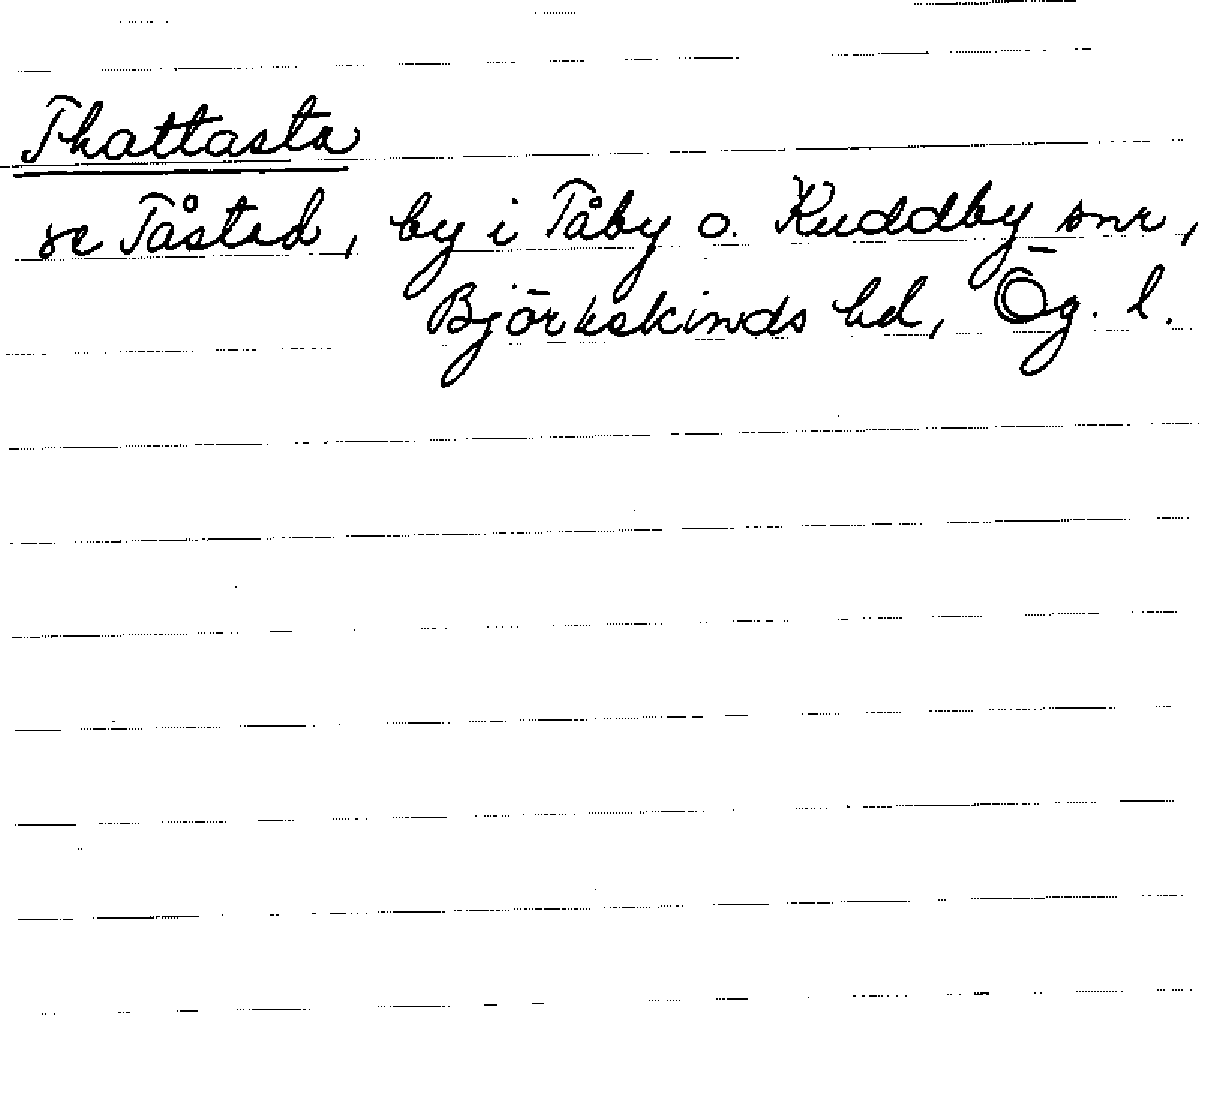 Thattasta
se Tåstad, by i Tåby o. Kuddby snr,
Björkekinds hd, Ög. l.